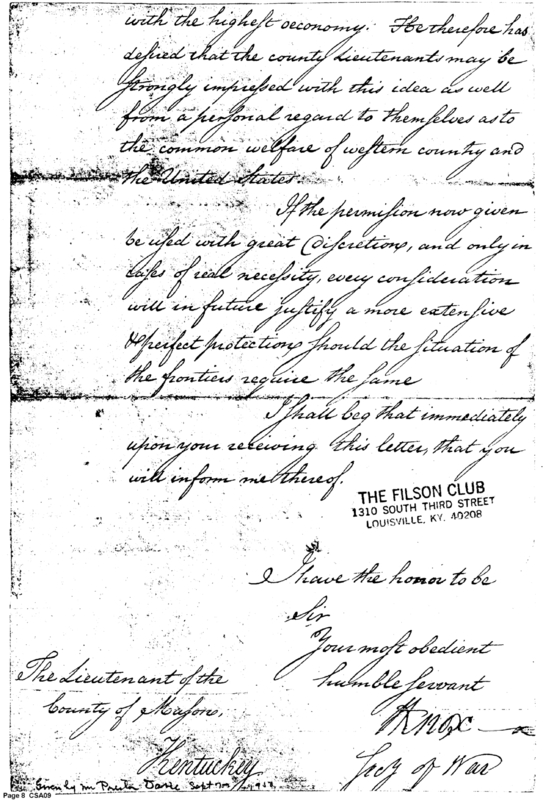 with the highest oeconomy. He therefore has
desired that the county Lieutenants may be
strongly impressed with this idea as well
from a personal regard to themselves as to
the common welfare of western country and
the United States.
If the permission now given
be used with great Discretion, and only in
cases of real necessity, every consideration
will in future justify a more extensive
& perfect protection should the situation of
the frontiers require the same
I shall beg that immediately
upon your receiving this letter, that you
will inform me thereof.
THE FILSON CLUB
1310 SOUTH THIRD STREET
LOUISVILLE, KY. 40208
I have the honor to be
Sir
Your most obedient
humble servant
HKnox
Secy of War
The Lieutenant of the
County of Mason,
Kentuckey
Given by Mr Preston Davie Sept
Page 8 CSA09